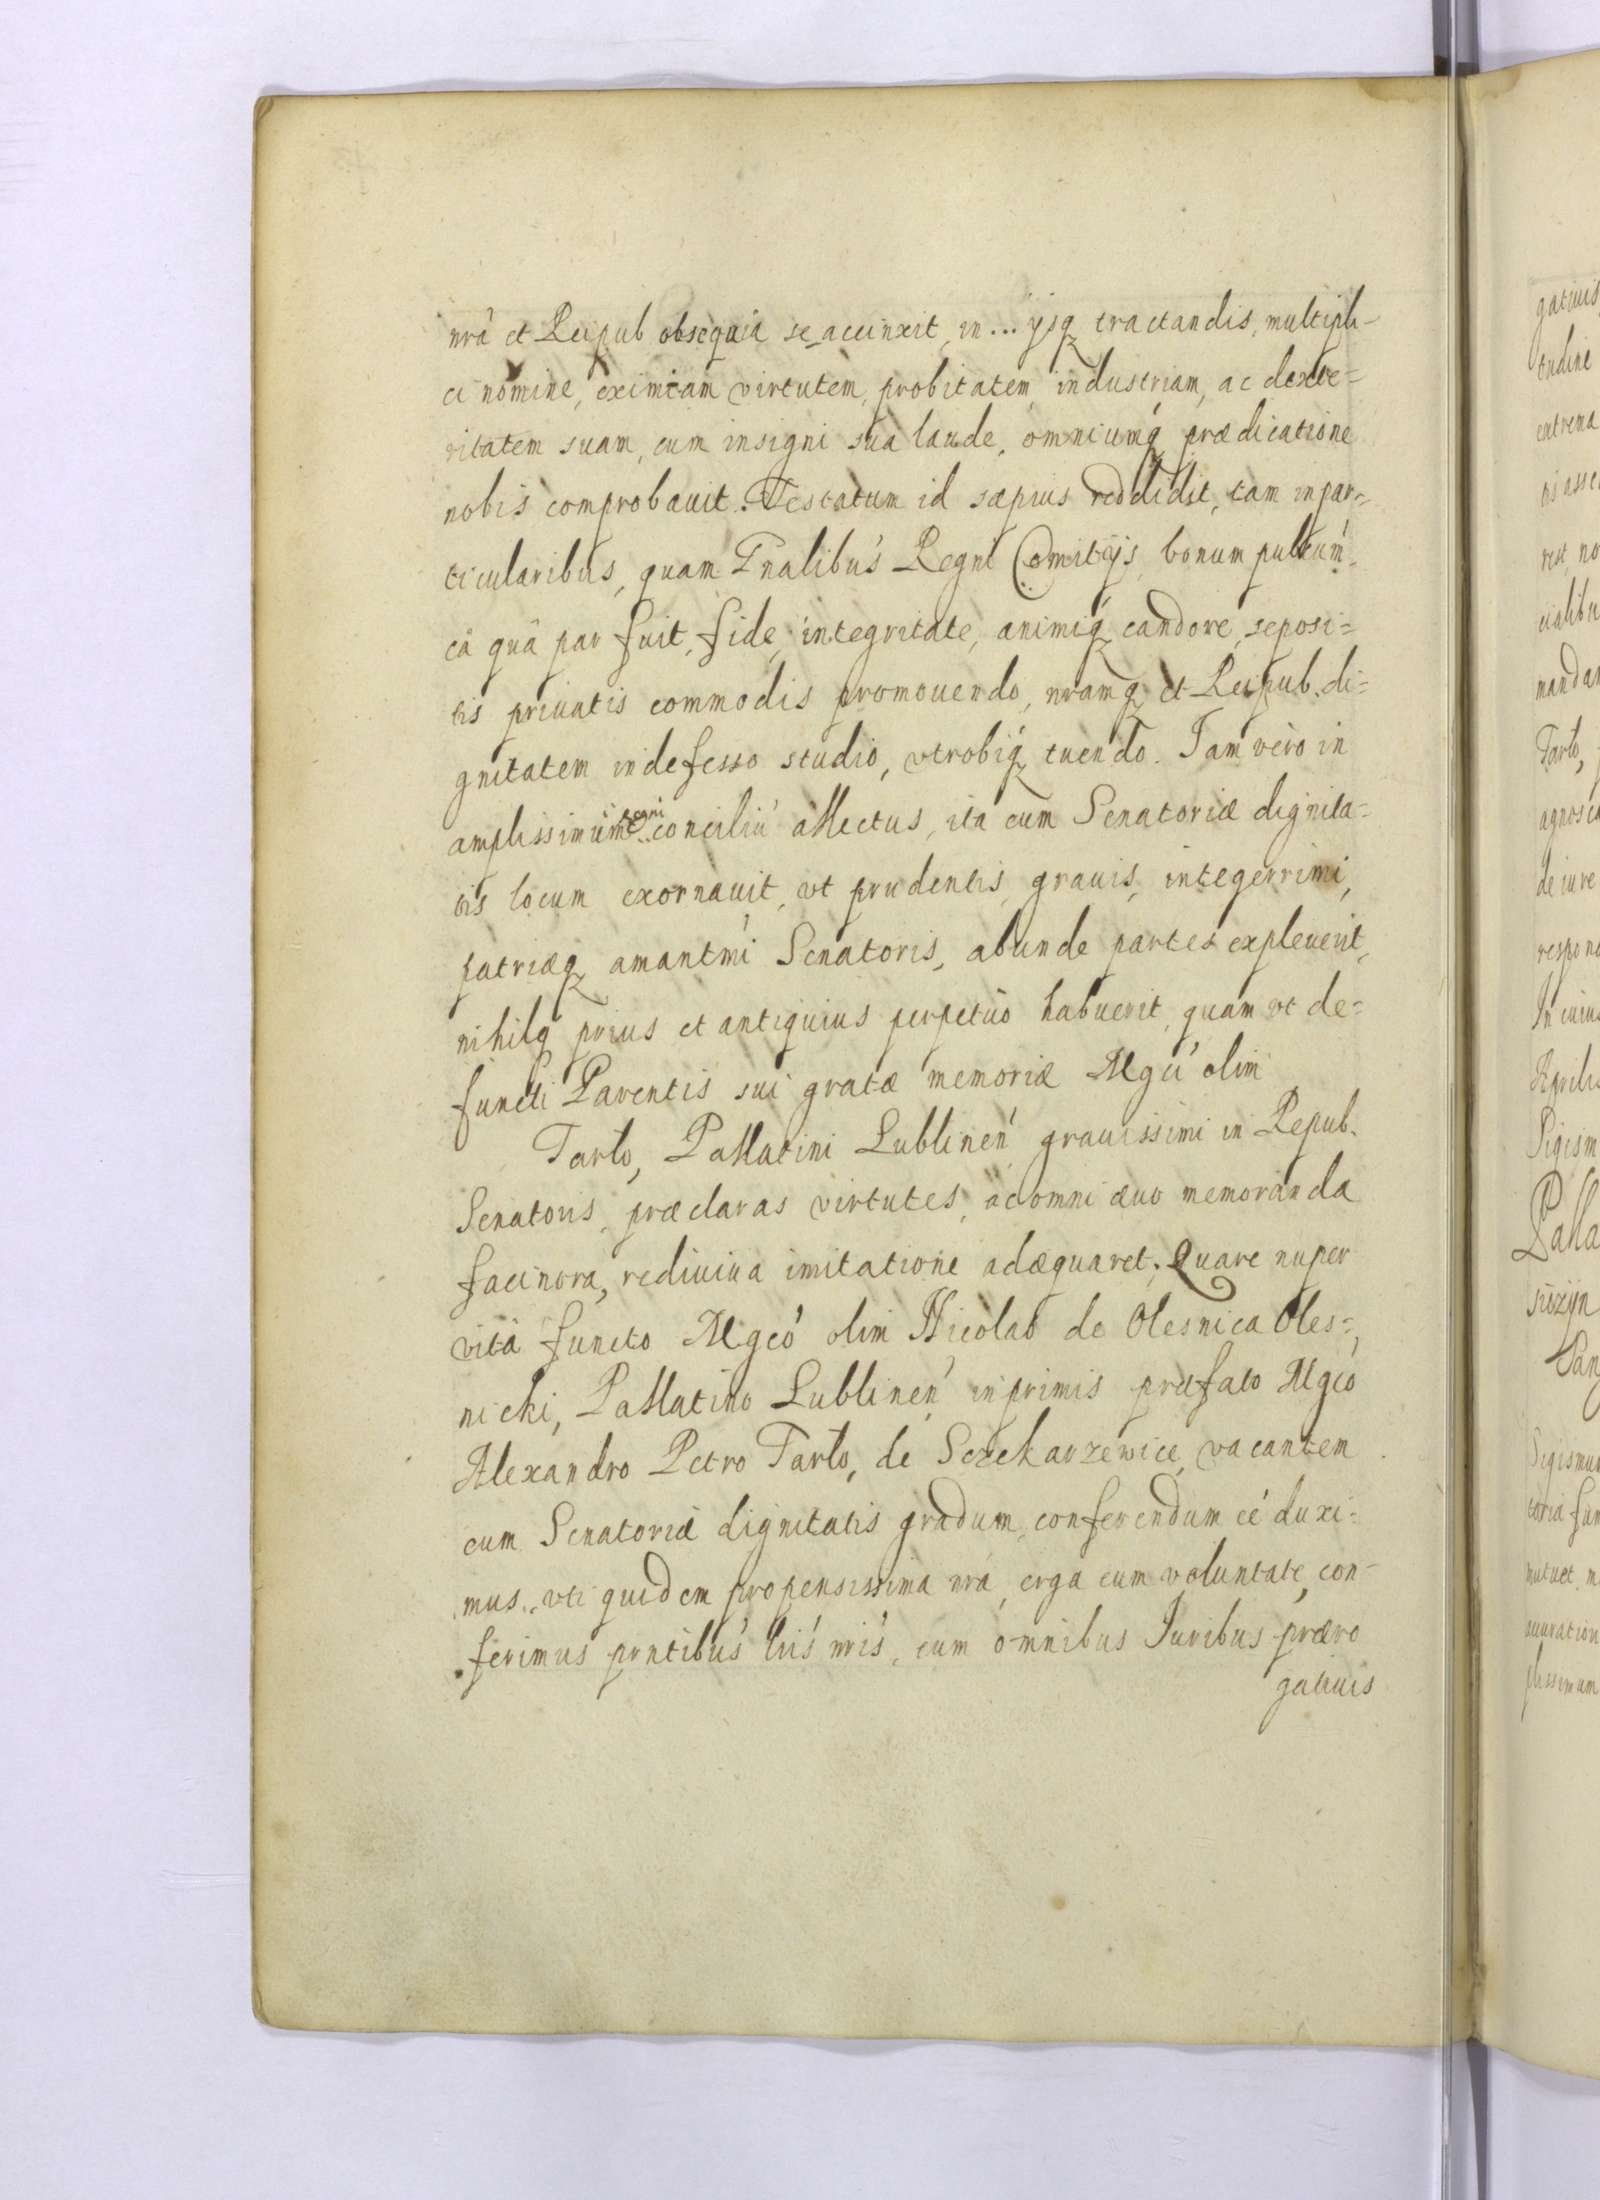 nrâ et Reipub obsequia se accinxit, in ... ijsq tractandis, multipli-
ci nomine, eximiam virtutem, probitatem, industriam, ac dexte=
ritatem suam, cum insigni sua laude, omniumq prædicatione
nobis comprobauit. Testatum id sæpius reddidit, tam in par=
ticularibus, quam Gnalibus Regni Comitijs, bonum publicum,
eâ quâ par fuit, fide, integritate, animiq candore, seposi=
tis priuatis commodis promouendo, nramq et Reipub. di=
gnitatem indefesso studio, vtrobiq tuendo. Jam vero in
amplissimum Regni conciliu allectus, ita eum Senatoriæ dignita=
tis locum exornauit, vt prudentis, grauis, integerrimi,
patriæq amantmi Senatoris, abunde partes expleuerit,
nihilq prius et antiquius perpetuo habuerit, quam vt de=
functi Parentis sui gratæ memoriæ Mgci olim
Tarlo, Pallatini Lublinen grauissimi in Repub.
Senatoris, præclaras virtutes, ac omni æuo memoranda
facinora, rediuiua imitatione adæquaret. Quare nuper
vitâ functo Mgco olim Nicolao de Olesnica Oles=
nicki, Pallatino Lublinen inprimis præfato Mgco
Alexandro Petro Tarlo, de Sczekarzewice, vacantem
eum Senatoriæ dignitatis gradum, conferendum eé duxi=
mus, vti quidem propensissima nra, erga eum voluntate, con-
ferimus prntibus lris nris, cum omnibus Juribus præro
gatiuis